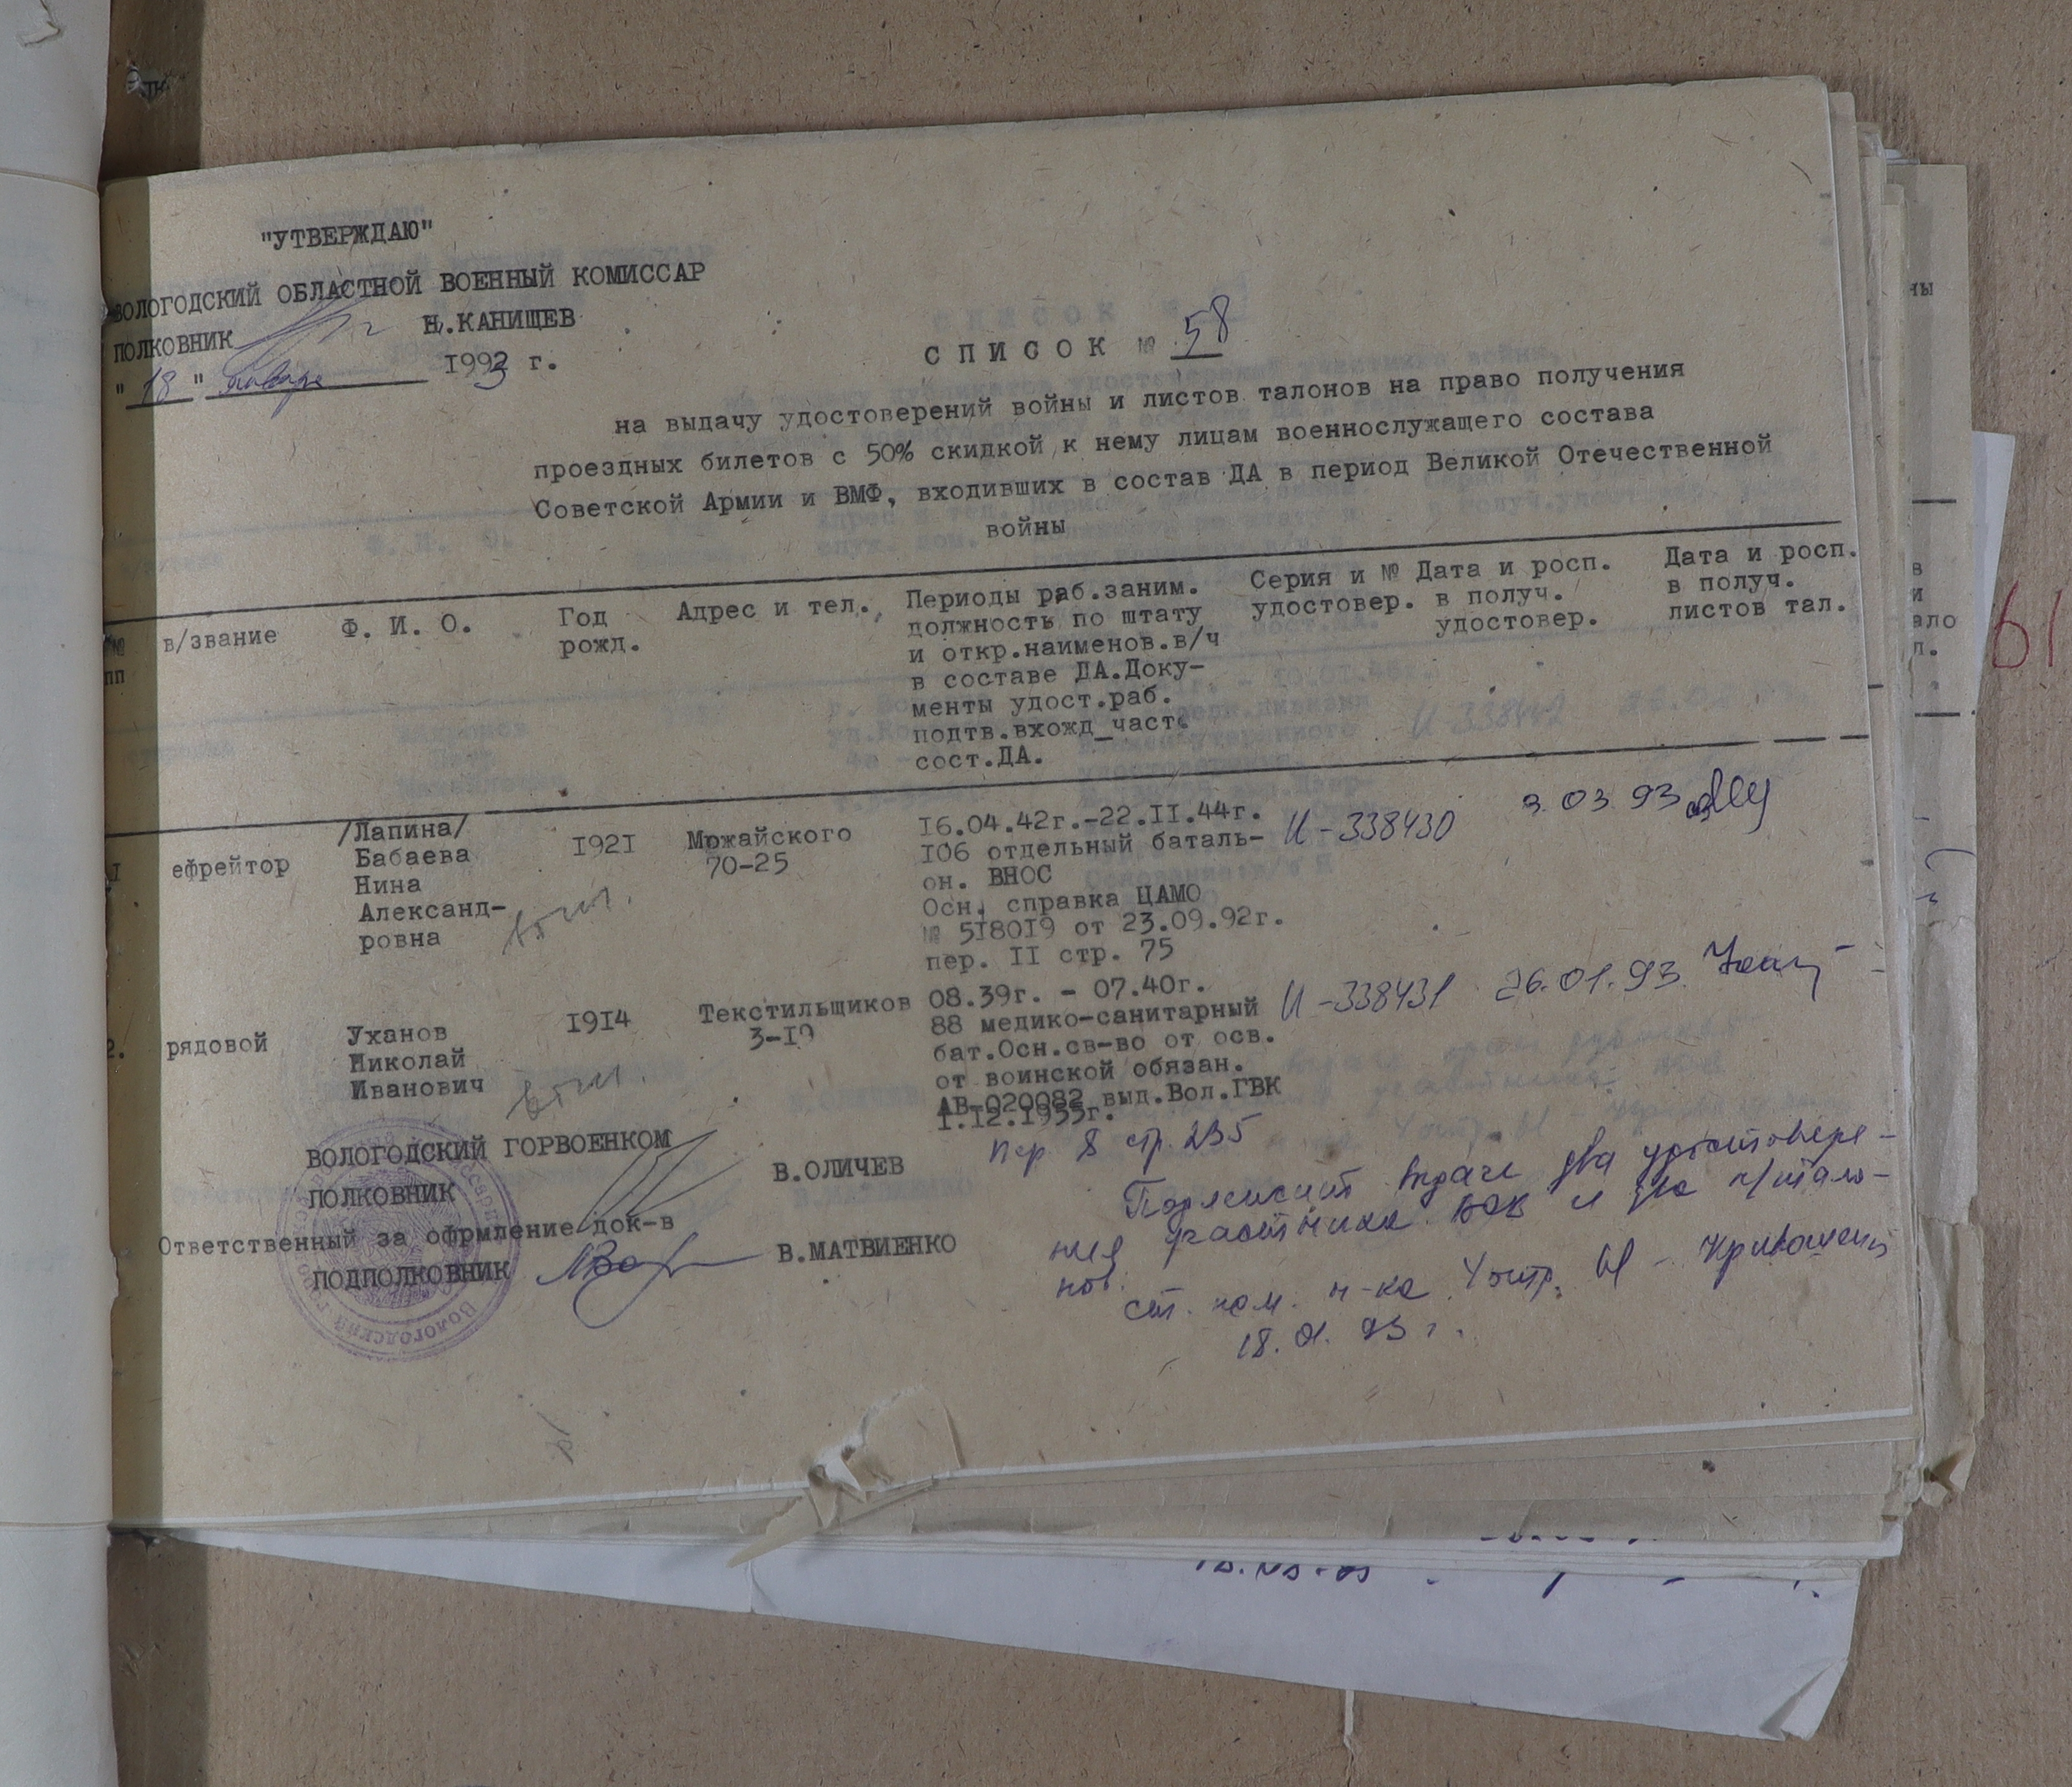 "УТВЕРЖДАЮ"
ВОЛОГОДСКИЙ ОБЛАСТНОЙ ВОЕННЫЙ КОМИССАР
ПОЛКОВНИК Н.КАНИЩЕВ
"18" января 1993 г.
С П И С О К № 58
на выдачу удостоверений войны и листов талонов на право получения
проездных билетов с 50% скидкой к нему лицам военнослужащего состава
Советской Армии и ВМФ, входивших в состав ДА в период Великой Отечественной
войны
№№
пп
в/звание
Ф. И. О.
Год
рожд.
Адрес и тел.
Периоды раб.заним.
должность по штату
и откр.наименов.в/ч
в составе ДА.Доку-
менты удост.раб.
подтв.вхожд_част.
сост.ДА.
Серия и №
удостовер.
Дата и росп.
в получ.
удостовер.
Дата и росп.
в получ.
листов тал.
I
ефрейтор
/Лапина/
Бабаева
Нина
Александ-
ровна
I92I
Мржайского
70-25
I6.04.42г.-22.II.44г.
I06 отдельный баталь-
он. ВНОС
Осн. справка ЦАМО
№ 5I80I9 от 23.09.92г.
пер. II стр. 75
И-338430
3.03.93
2.
рядовой
Уханов
Николай
Иванович
I9I4
Текстильщиков
3-I9
08.39г. - 07.40г.
88 медико-санитарный
бат.Осн.св-во от осв.
от воинской обязан.
АВ-020082 выд.Вол.ГВК
I.I2.I955г.
пер 8 стр. 235
И-338431
26.01.93.
ВОЛОГОДСКИЙ ГОРВОЕНКОМ
ПОЛКОВНИК В.ОЛИЧЕВ
Ответственный за офрмление док-в
ПОДПОЛКОВНИК В.МАТВИЕНКО
Подлежит выдаче два удостовере-
ния участника ВОВ и два л/тало-
нов.
ст. пом. н-ка 4 отд.
18.01.93 г.
61